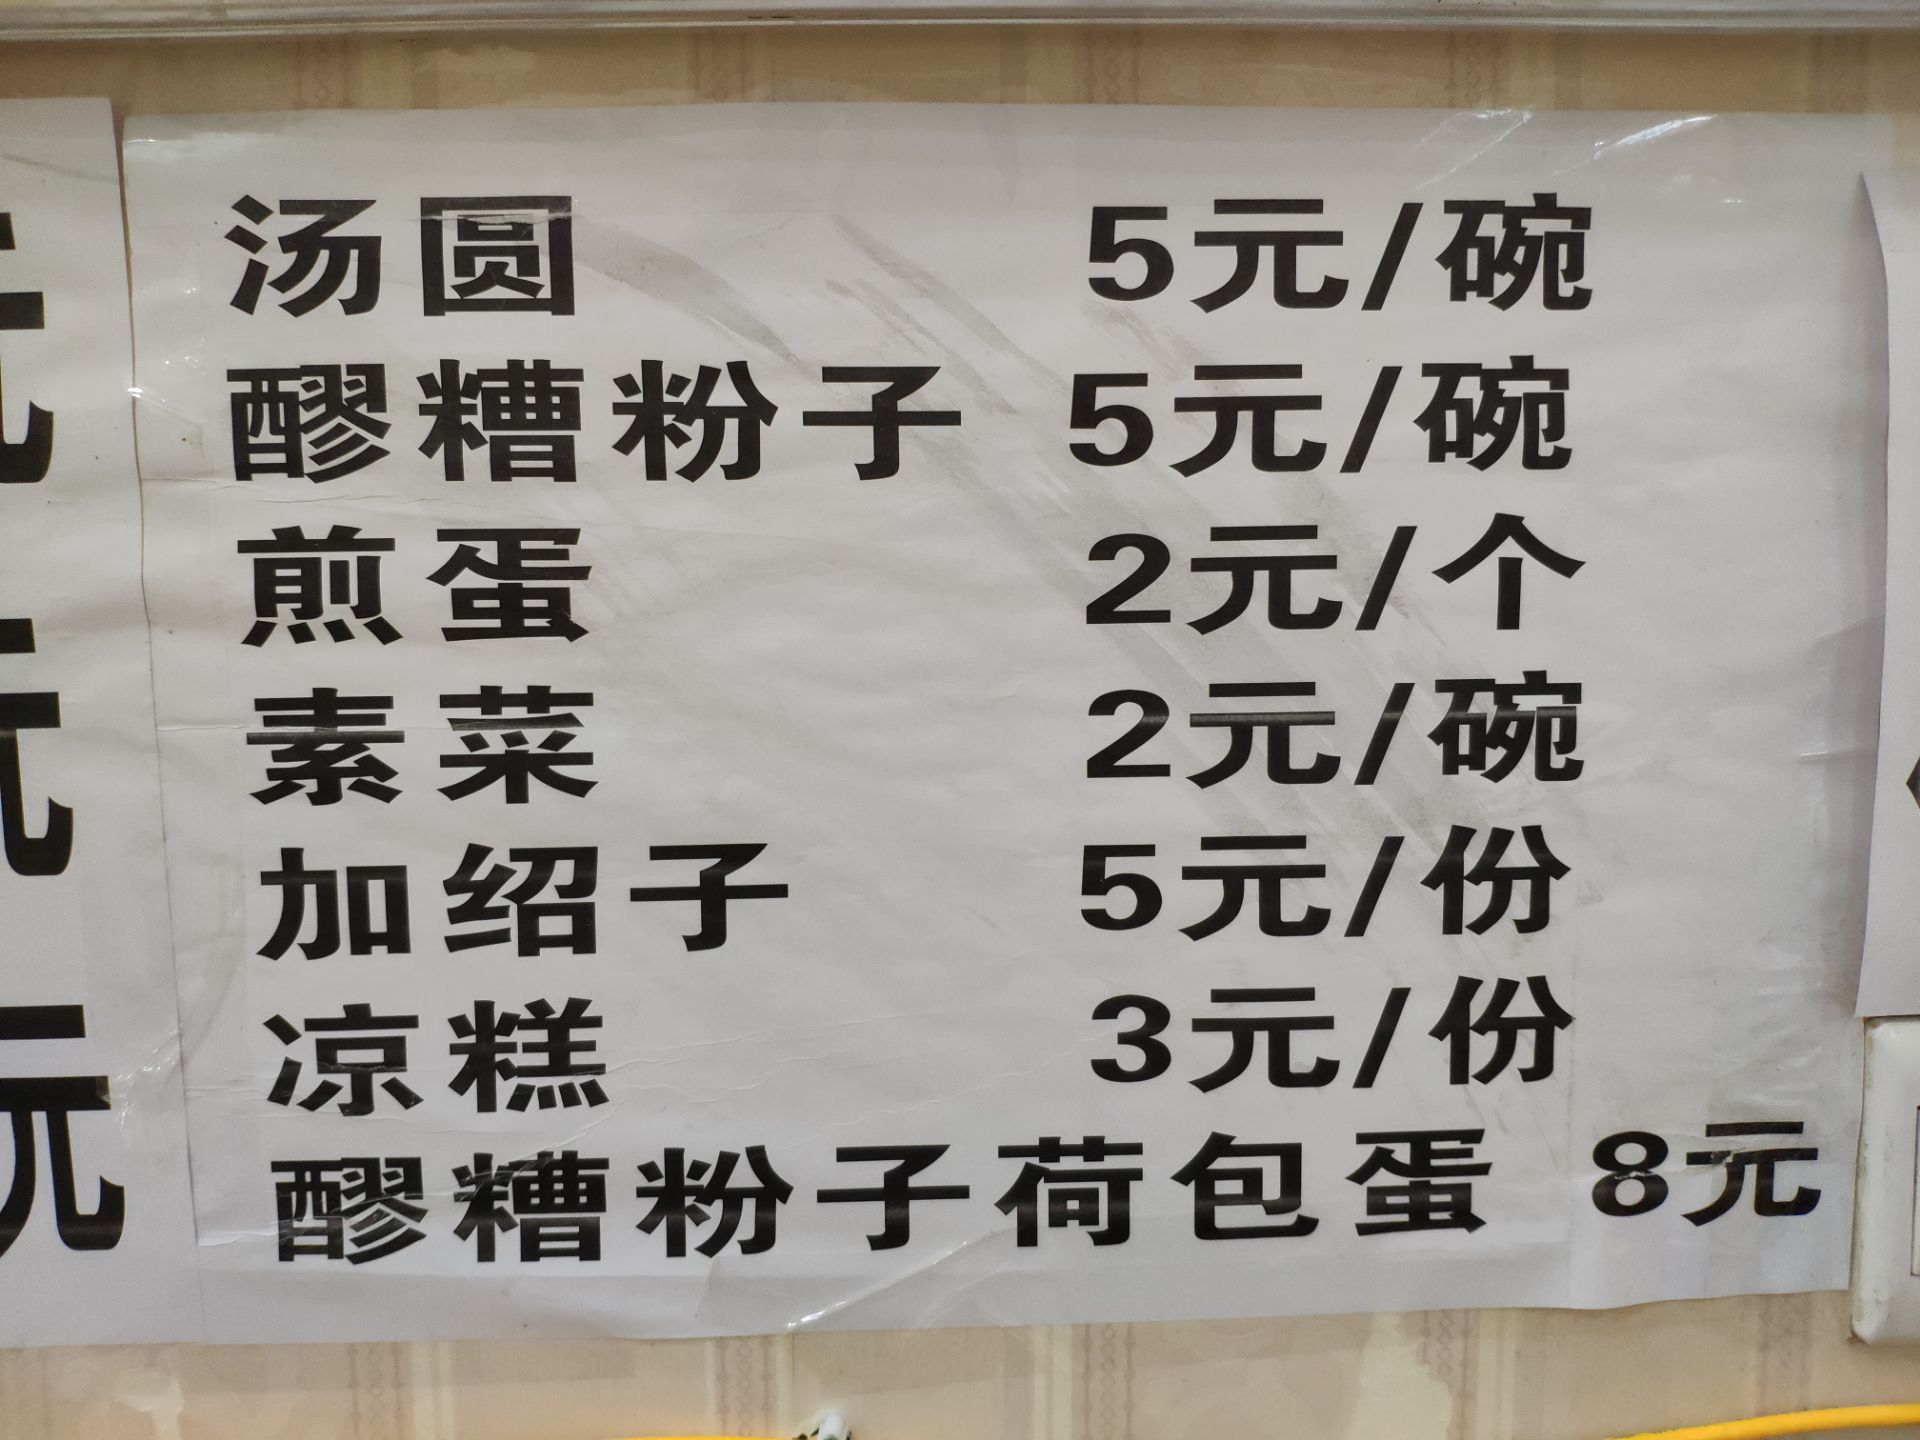 汤圆 5元/碗
醪糟粉子 5元/碗
煎蛋 2元/个
素菜 2元/碗
加绍子 5元/份
凉糕 3元/份
醪糟粉子荷包蛋 8元
元
元
元